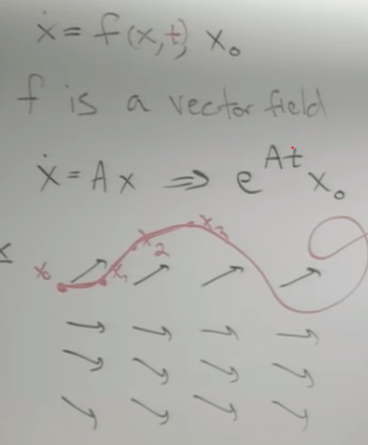 ẋ = f(x,t), x₀
f is a vector field
ẋ = Ax ⇒ e^{At} x₀
x₀ x₁ x₂ x₃